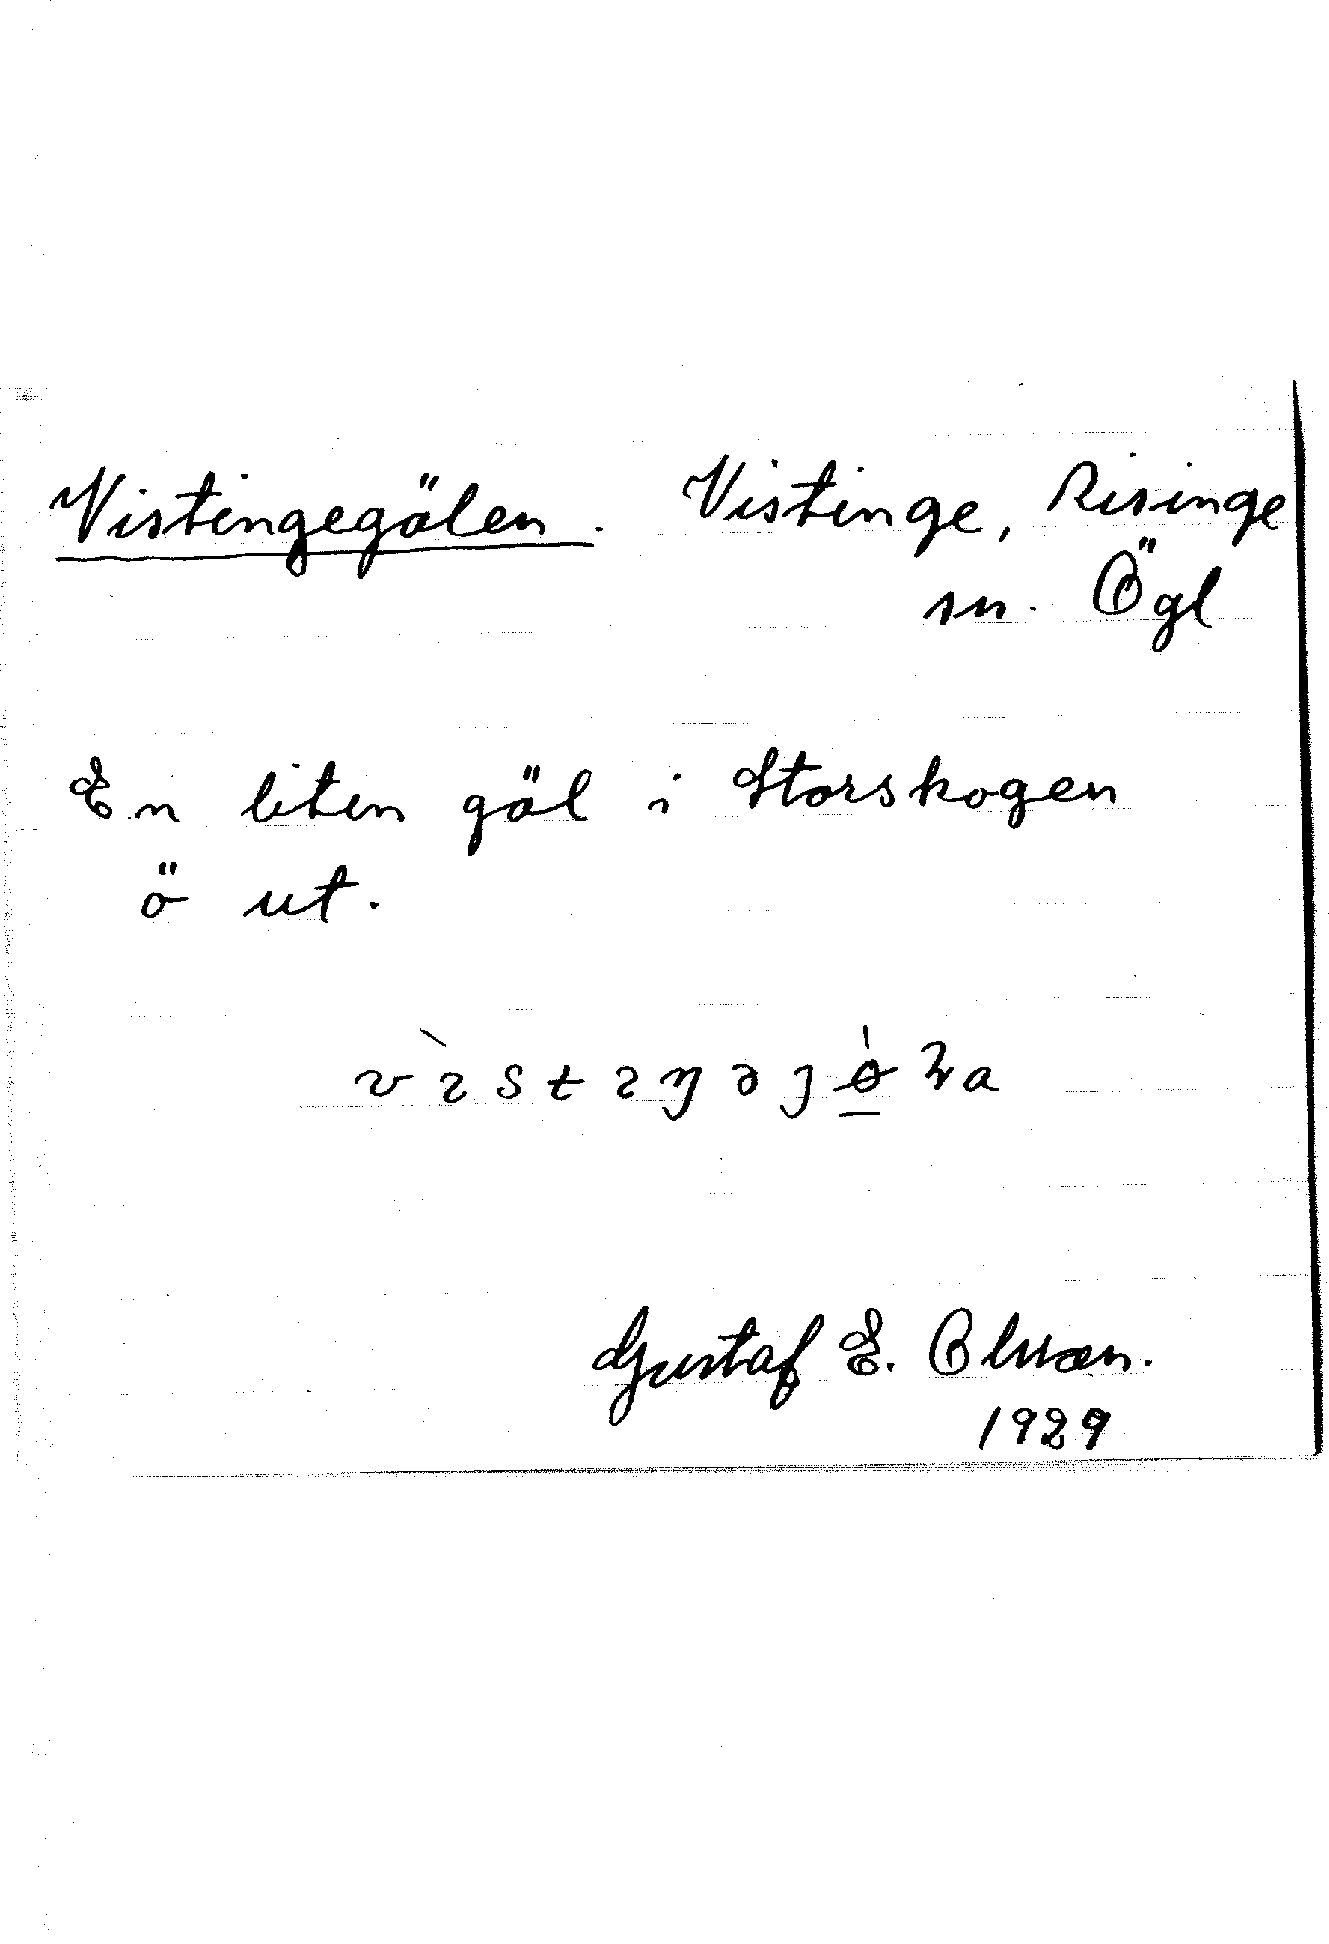 Vistingegölen. Vistinge, Risinge
sn. Ögl
En liten göl i Storskogen
ö ut.
Gustaf E. Olsson.
1929